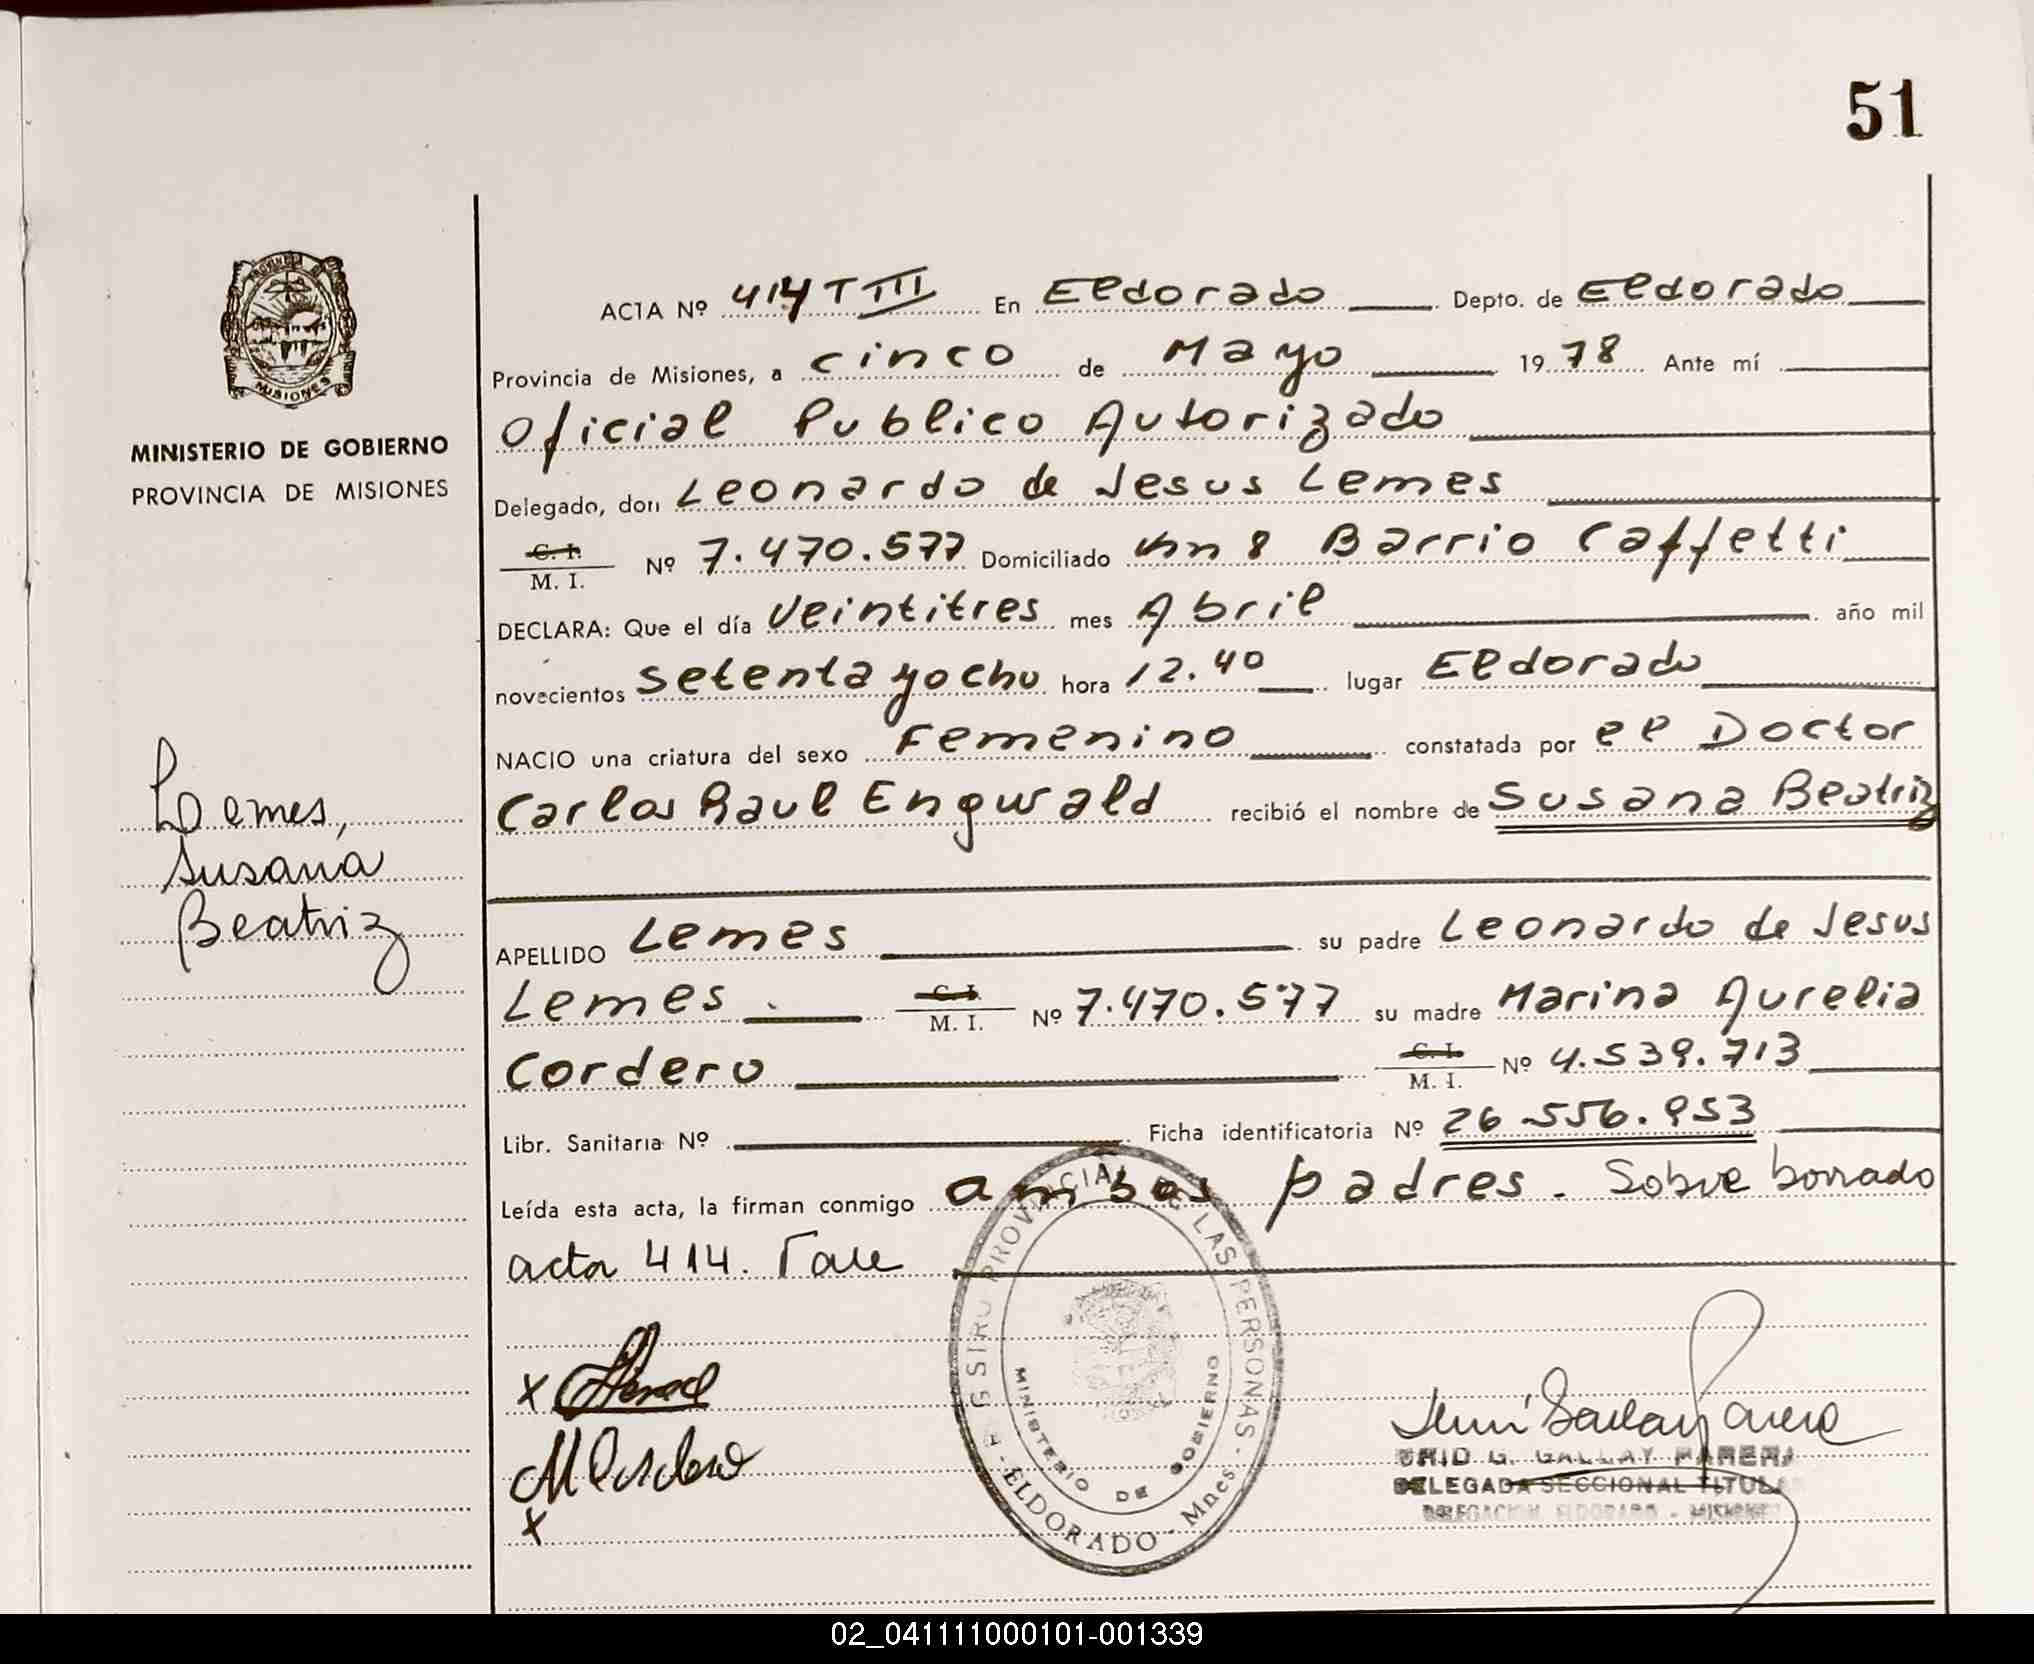 51
ACTA Nº 414 T III En Eldorado Depto. de Eldorado
Provincia de Misiones, a cinco de Mayo 1978 Ante mí
Oficial Publico Autorizado
Delegado, don Leonardo de Jesus Lemes
C. I. / M. I. Nº 7.470.577 Domiciliado Km 8 Barrio Caffetti
DECLARA: Que el día Veintitres mes Abril año mil
novecientos setenta y ocho hora 12.40 lugar Eldorado
NACIO una criatura del sexo Femenino constatada por el Doctor
Carlos Raul Engwald recibió el nombre de Susana Beatriz
APELLIDO Lemes su padre Leonardo de Jesus
Lemes C. I. / M. I. Nº 7.470.577 su madre Marina Aurelia
Cordero C. I. / M. I. Nº 4.539.713
Libr. Sanitaria Nº Ficha identificatoria Nº 26.556.953
Leída esta acta, la firman conmigo ambos padres. Sobre borrado
acta 414. Vale
PROVINCIA DE MISIONES
MINISTERIO DE GOBIERNO
PROVINCIA DE MISIONES
Lemes,
Susana
Beatriz
x
M Cordero
x
REGISTRO PROVINCIAL DE LAS PERSONAS - ELDORADO - Mnes.
MINISTERIO DE GOBIERNO
G. GALLAY PARERA
DELEGADA SECCIONAL TITULAR
DELEGACION ELDORADO - MISIONES
02_041111000101-001339